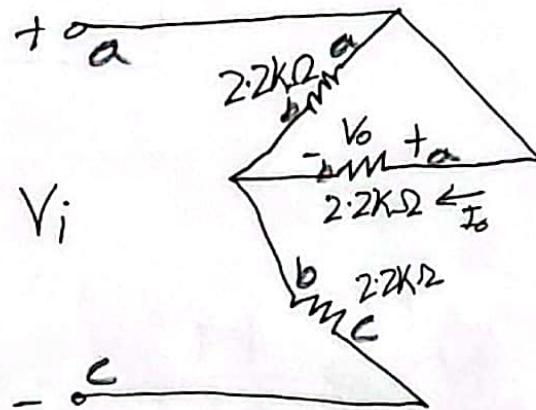 + a
2.2KΩ a
b
- V₀ +
b a
2.2KΩ ← I₀
Vi
b 2.2KΩ
c
- c